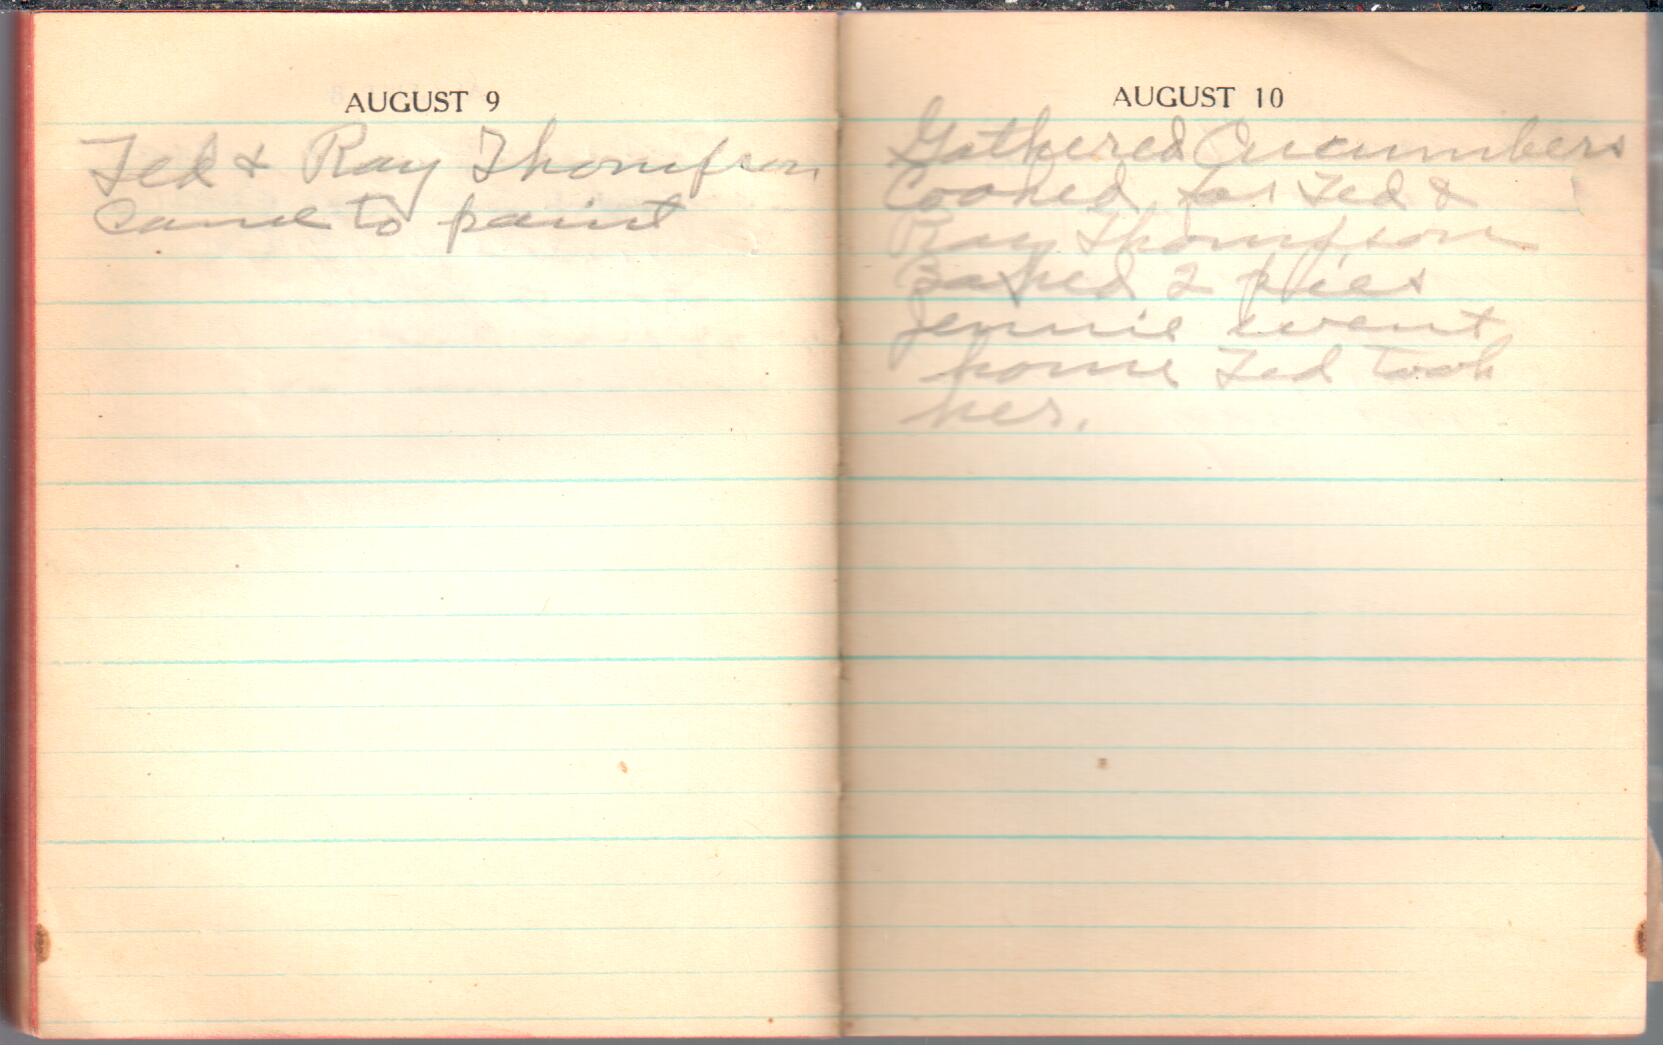 AUGUST 9
Ted & Ray Thompson
came to paint
AUGUST 10
Gathered Cucumbers
Cooked for Ted &
Ray Thompson
Baked 2 pies
Jennie went
home Ted took
her.